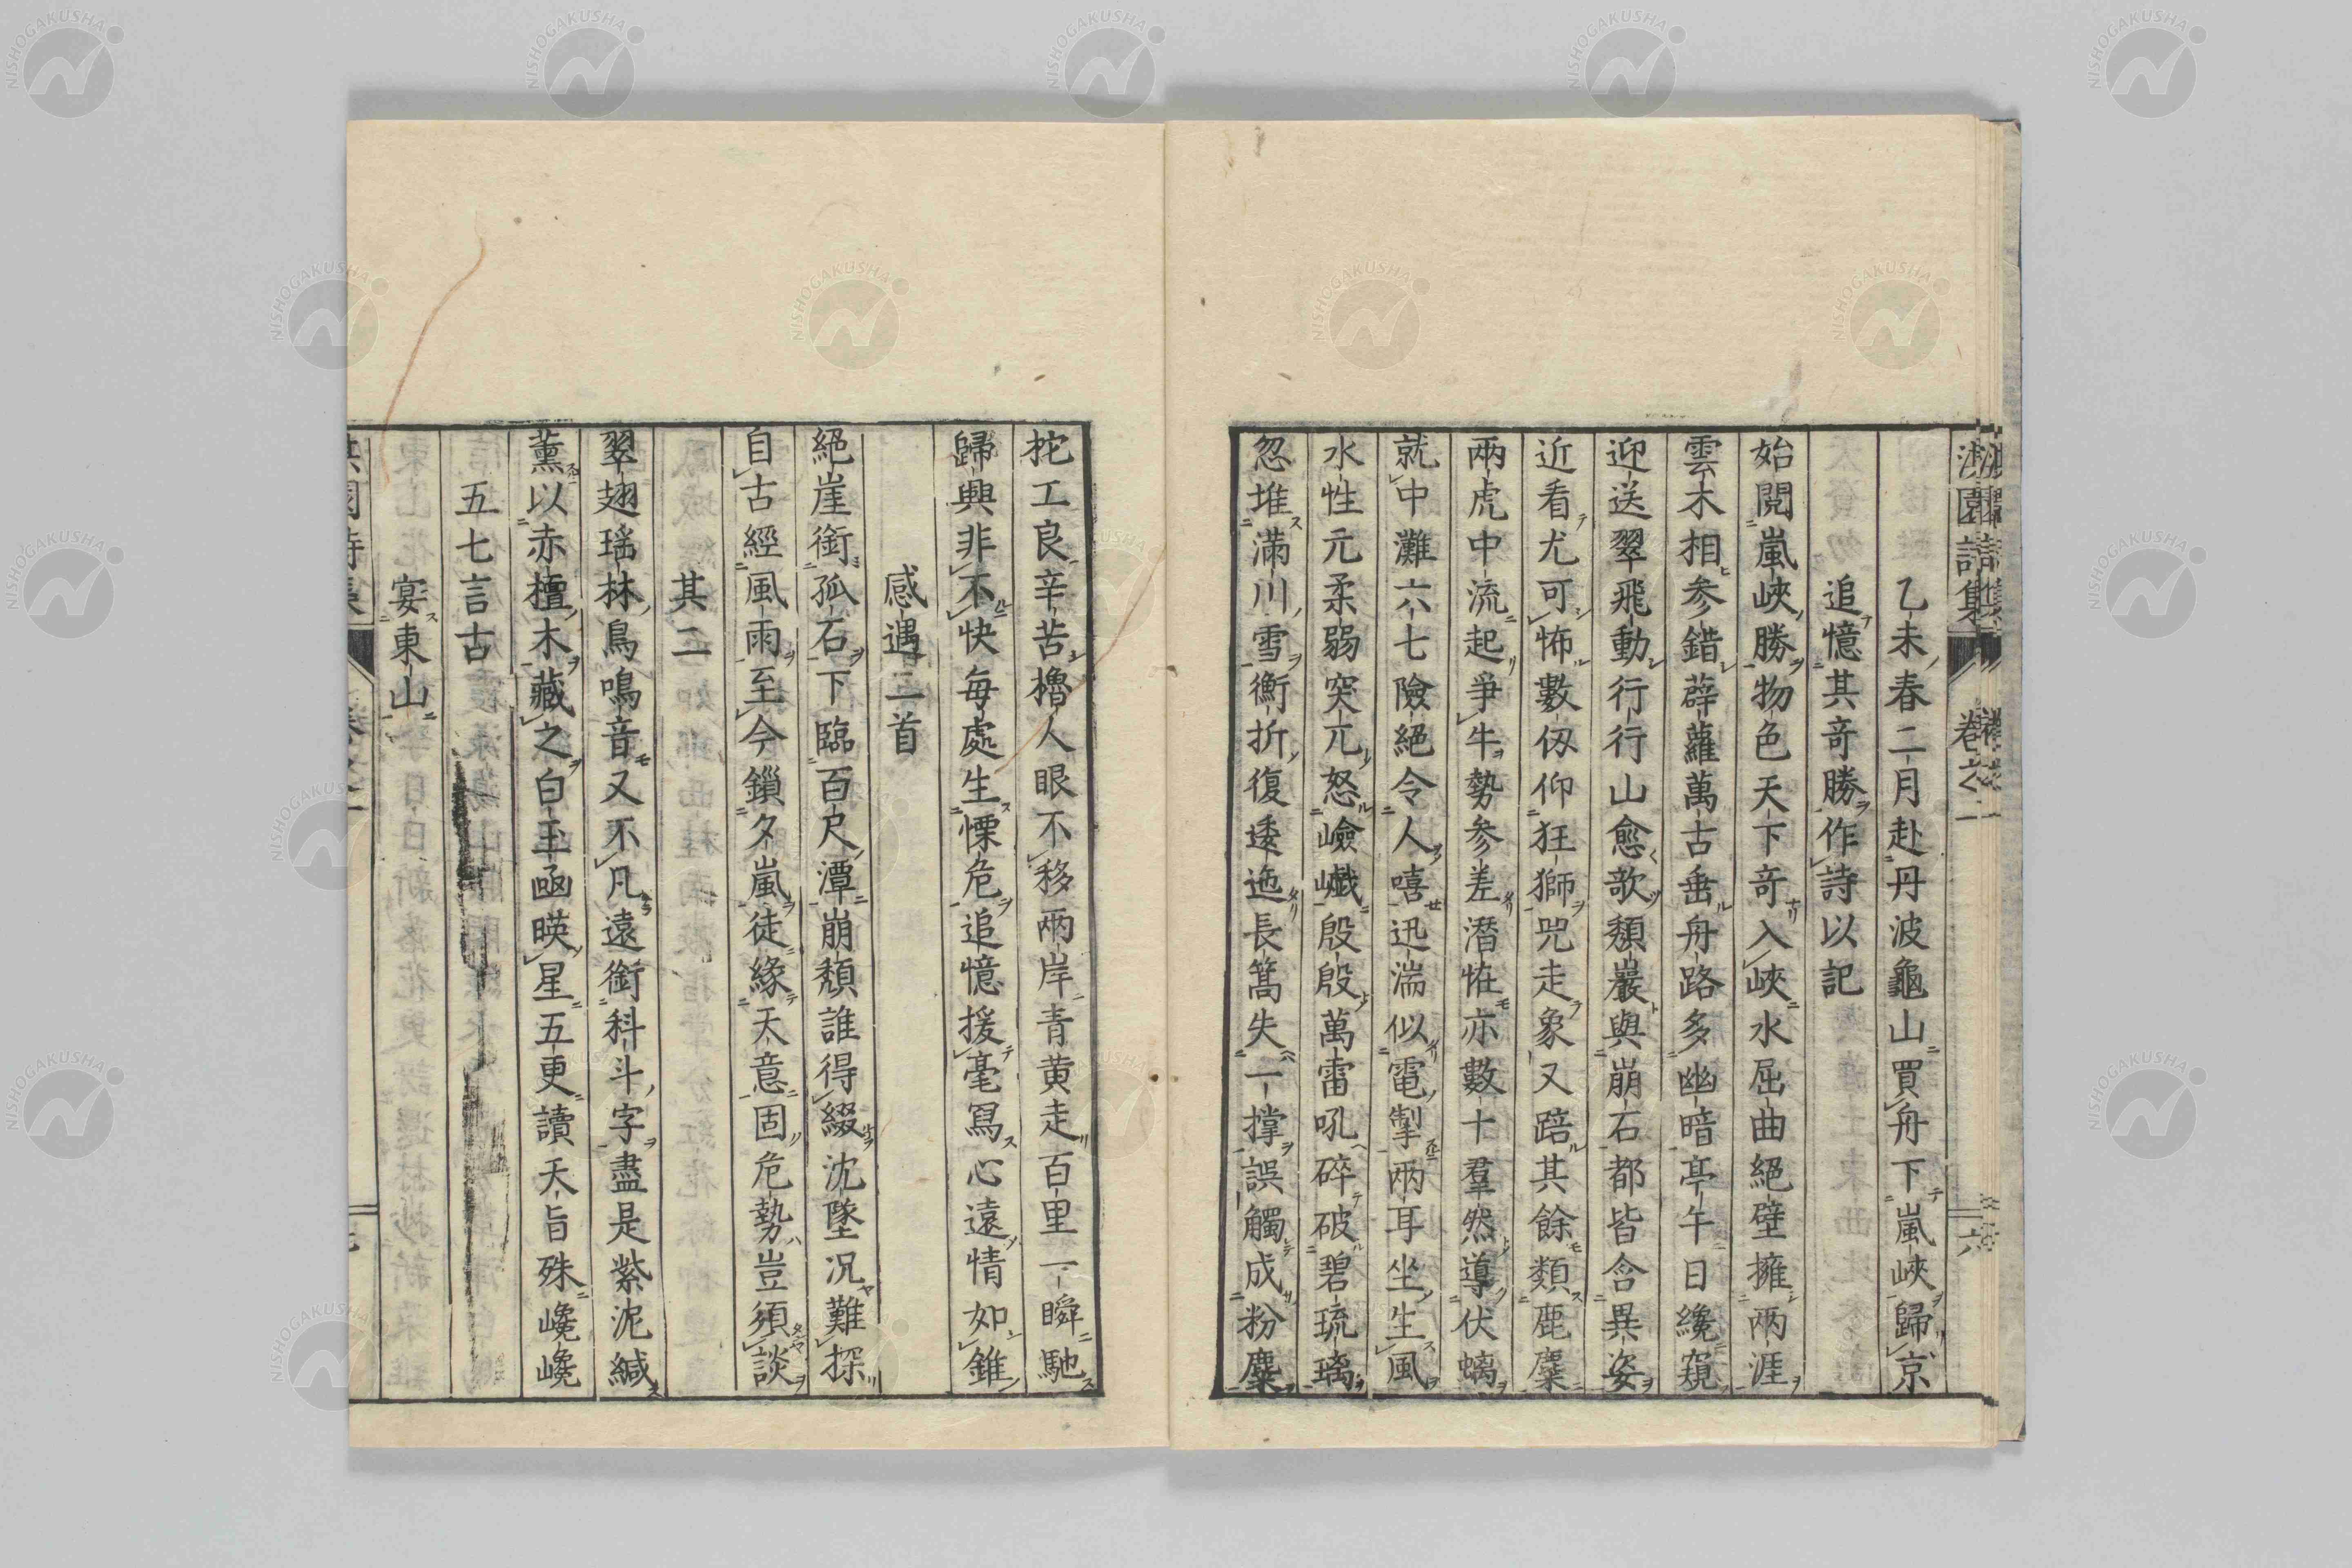 乙未春二月赴丹波龜山買舟下嵐峽歸京
追憶其竒勝作詩以記
始閱嵐峽勝物色天下竒入峽水屈曲絕壁擁兩涯
雲木相參錯薜蘿萬古垂舟路多幽暗亭午日纔窺
迎送翠飛動行行山愈歌頹巖與崩石都皆含異姿
近看尤可怖數仭仰狂獅咒走象又踣其餘類鹿麋
兩虎中流起爭牛勢參差潛恠亦數十羣然導伏螭
就中灘六七險絕令人嘻迅湍似電掣兩耳坐生風
水性元柔弱突兀怒嶮巇殷殷萬雷吼碎破碧琉璃
忽堆滿川雪衡折復逶迤長篙失一撐誤觸成粉麋
柁工良辛苦櫓人眼不移兩岸青黃走百里一瞬馳
歸興非不快每處生慄危追憶援毫寫心遠情如錐
感遇二首
絕崖銜孤石下臨百尺潭崩頹誰得綴沈墜况難探
自古經風雨至今鎖夕嵐徒緣天意固危勢豈須談
其二
翠翅瑤林鳥鳴音又不凡遠銜科斗字盡是紫泥緘
薰以赤檀木藏之白玉凾暎星五更讀天旨殊巉巉
五七言古
宴東山
卷之二
六
NISHOGAKUSHA